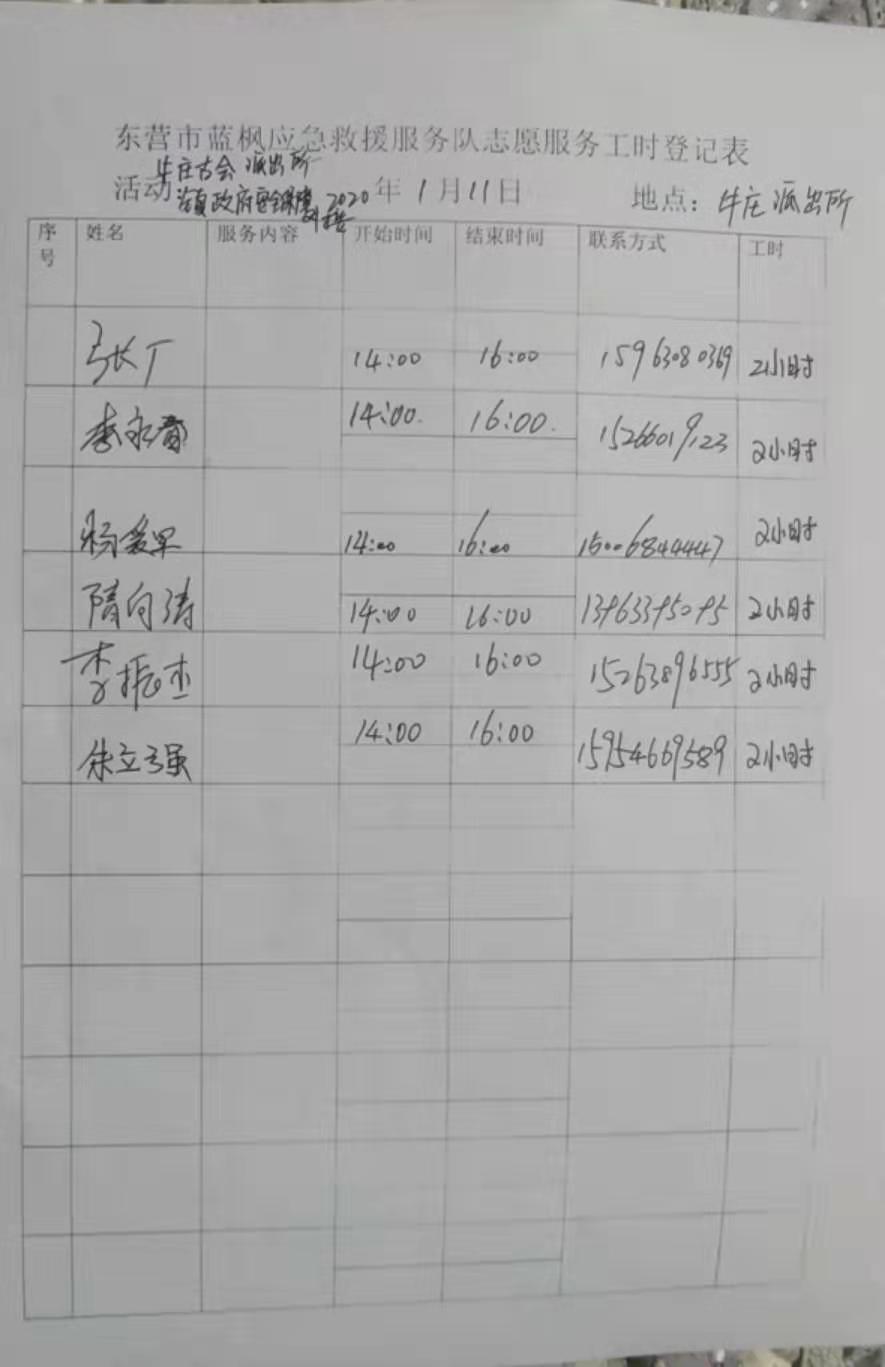 东营市蓝枫应急救援服务队志愿服务工时登记表
牛庄古会 派出所
活动 镇政府安全保障 2020年1月11日 地点：牛庄派出所
序号 姓名 服务内容 开始时间 结束时间 联系方式 工时
张丁 14:00 16:00 15963080369 2小时
李永 14:00. 16:00. 15266019123 2小时
杨爱军 14:00 16:00 15006844447 2小时
隋向涛 14:00 16:00 13963395095 2小时
李振杰 14:00 16:00 15263896555 2小时
朱立强 14:00 16:00 15954669589 2小时